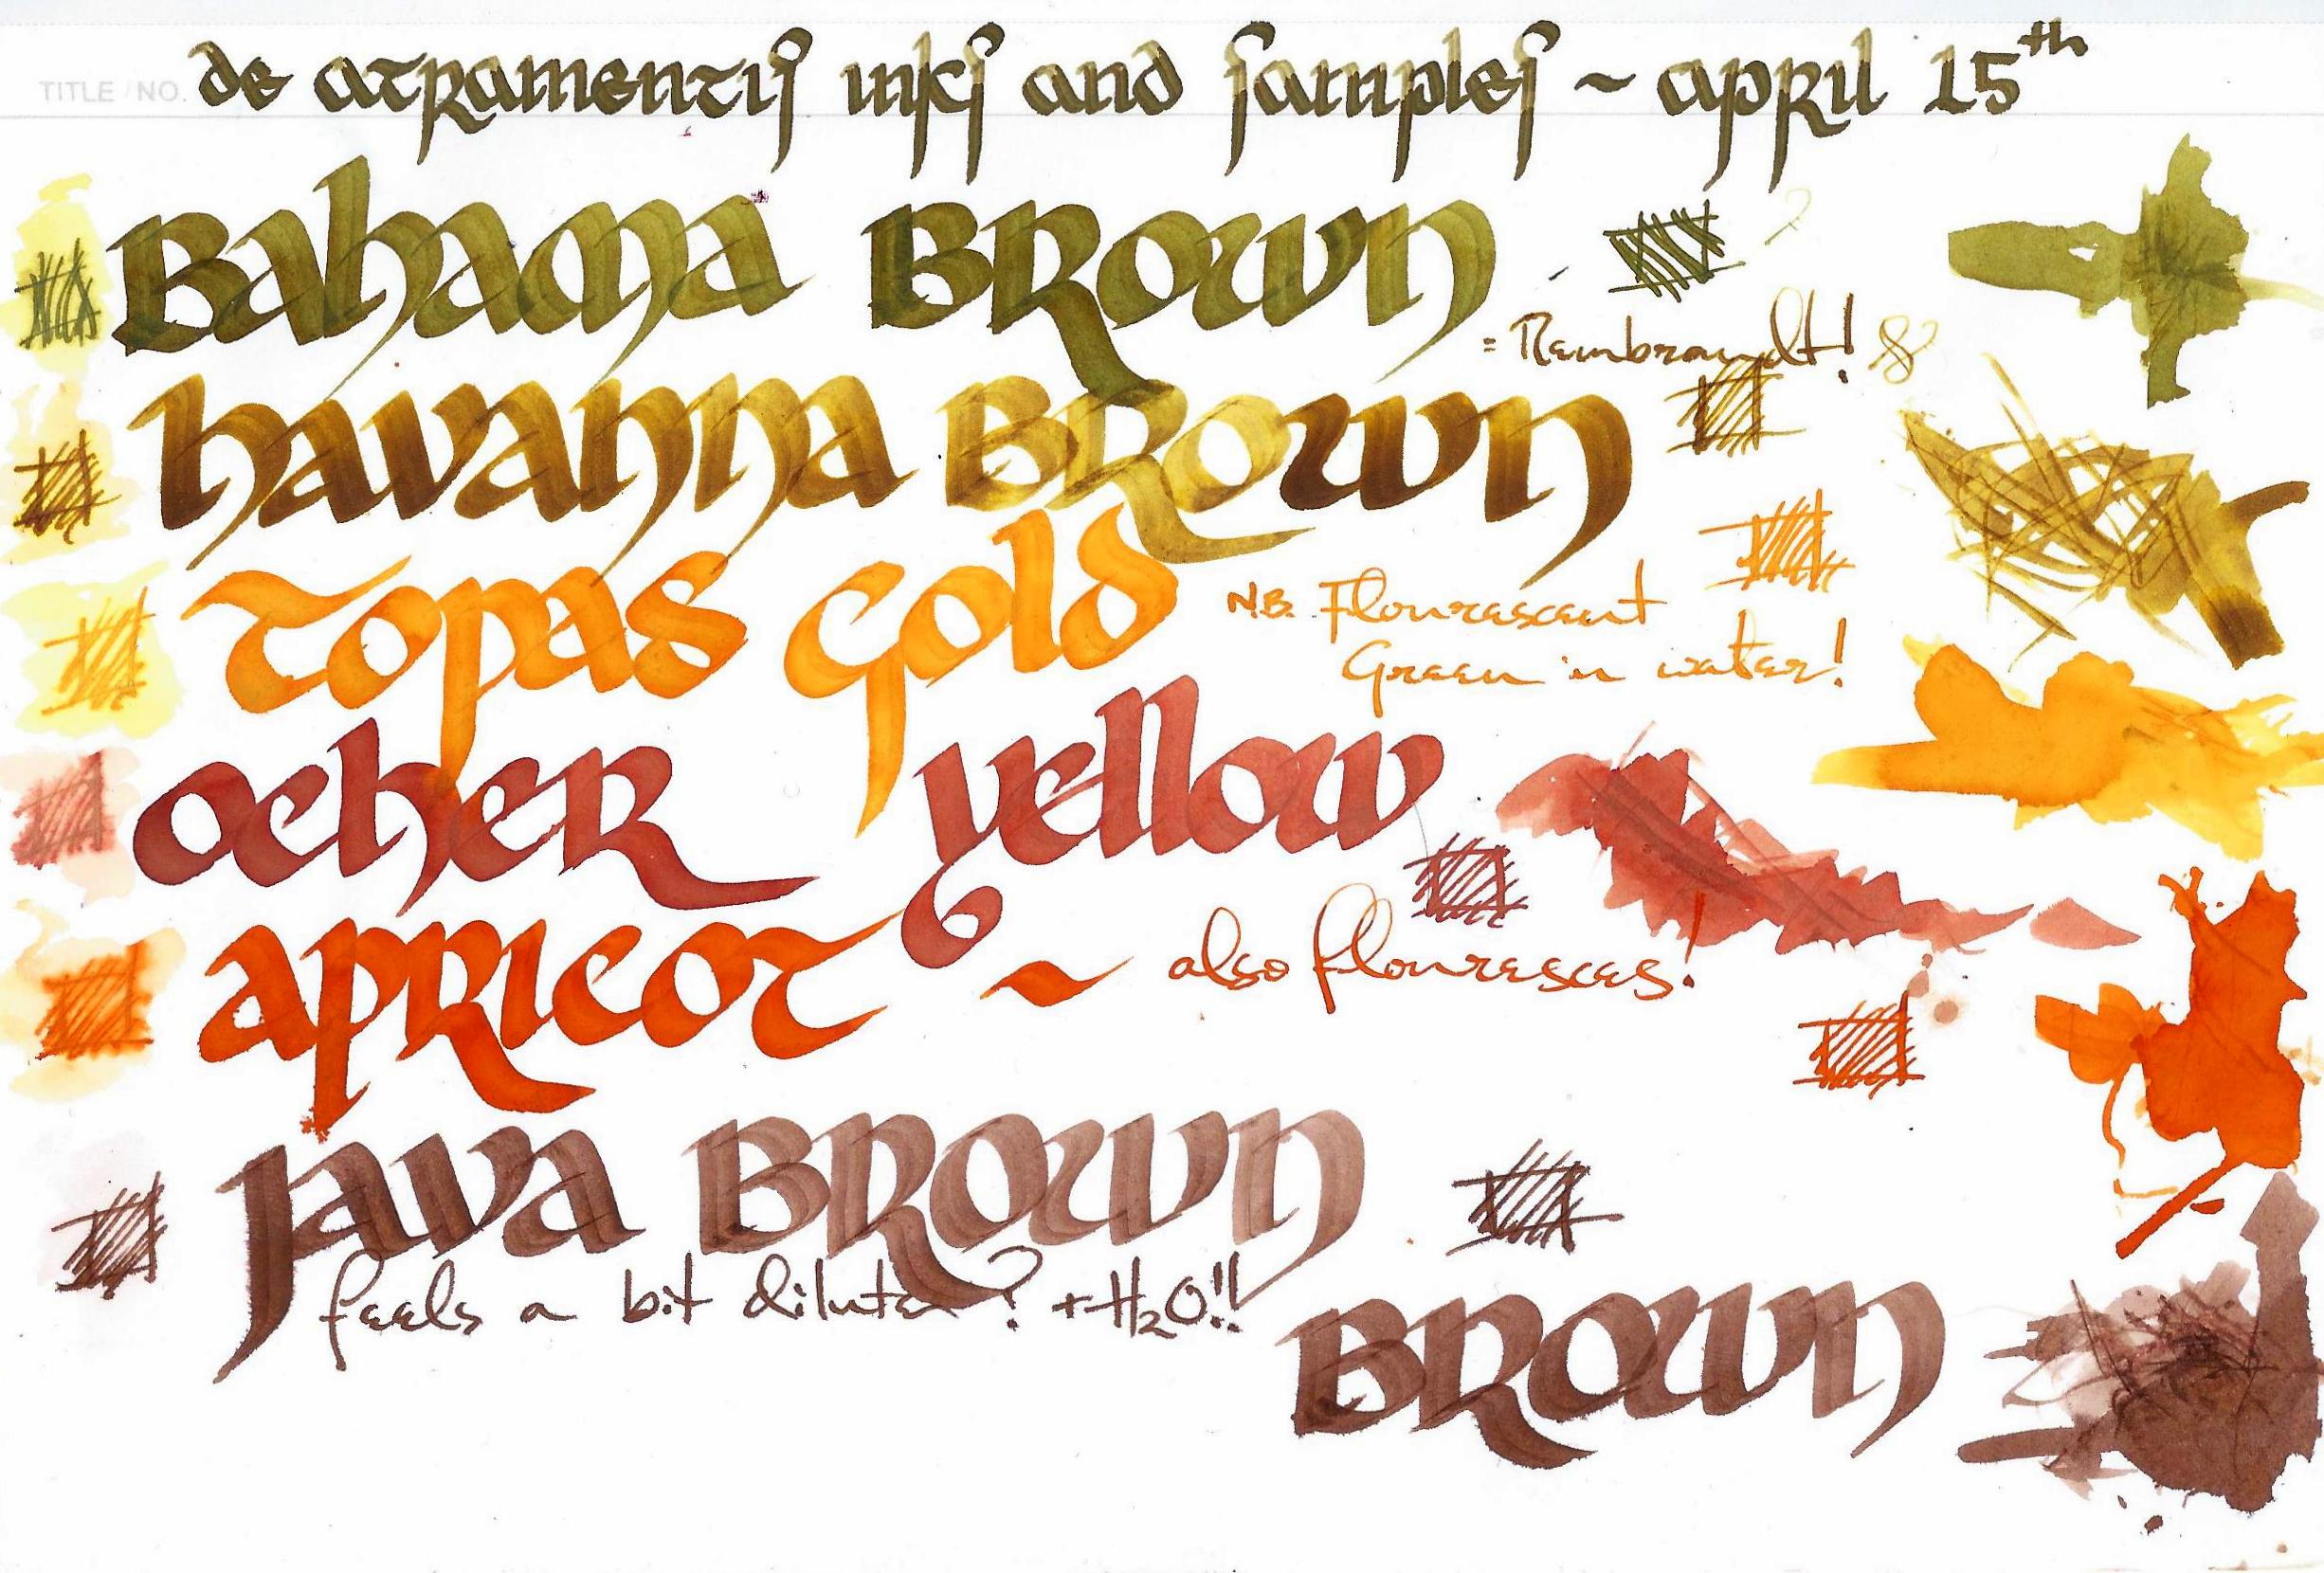 TITLE / NO.
de atramentis inks and samples ~ april 15th
Bahama Brown
= Rembrandt!
havanna Brown
Topas Gold
N.B. Flourescent
Green in water!
ocher yellow
apricot ~ also flouresces!
Java Brown
feels a bit dilute? + H2O!!
Brown